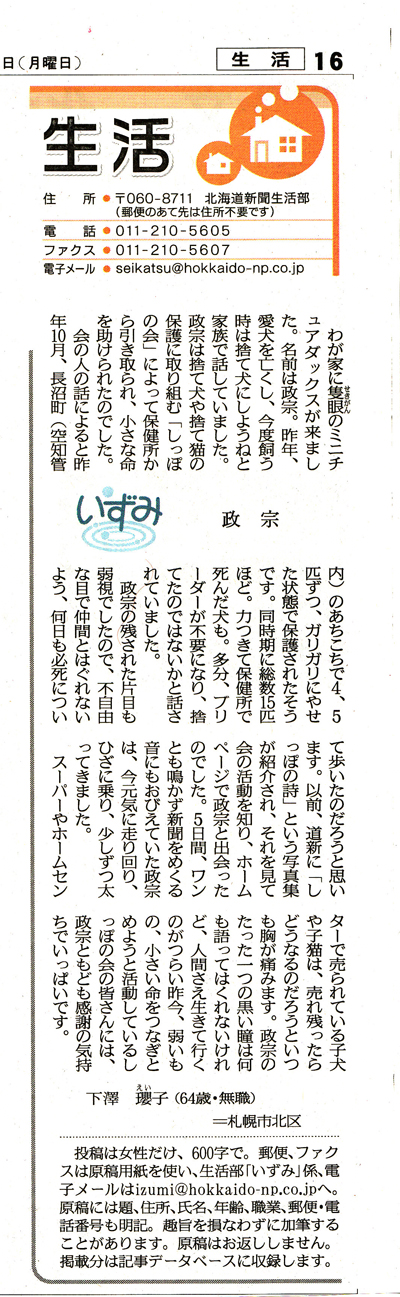 日(月曜日)
生活
16
生活
住所●〒060-8711 北海道新聞生活部
(郵便のあて先は住所不要です)
電話●011-210-5605
ファクス●011-210-5607
電子メール●seikatsu@hokkaido-np.co.jp
いずみ
政宗
わが家に隻眼のミニチ
せきがん
ュアダックスが来まし
た。名前は政宗。昨年、
愛犬を亡くし、今度飼う
時は捨て犬にしようねと
家族で話していました。
政宗は捨て犬や捨て猫の
保護に取り組む「しっぽ
の会」によって保健所か
ら引き取られ、小さな命
を助けられたのでした。
会の人の話によると昨
年10月、長沼町(空知管
内)のあちこちで4、5
匹ずつ、ガリガリにやせ
た状態で保護されたそう
です。同時期に総数15匹
ほど。力つきて保健所で
死んだ犬も。多分、ブリ
ーダーが不要になり、捨
てたのではないかと話さ
れていました。
政宗の残された片目も
弱視でしたので、不自由
な目で仲間とはぐれない
よう、何日も必死につい
て歩いたのだろうと思い
ます。以前、道新に「し
っぽの詩」という写真集
が紹介され、それを見て
会の活動を知り、ホーム
ページで政宗と出会った
のでした。5日間、ワン
とも鳴かず新聞をめくる
音にもおびえていた政宗
は、今元気に走り回り、
ひざに乗り、少しずつ太
ってきました。
スーパーやホームセン
ターで売られている子犬
や子猫は、売れ残ったら
どうなるのだろうといつ
も胸が痛みます。政宗の
たった一つの黒い瞳は何
も語ってはくれないけれ
ど、人間さえ生きて行く
のがつらい昨今、弱いも
の、小さい命をつなぎと
めようと活動しているし
っぽの会の皆さんには、
政宗ともども感謝の気持
ちでいっぱいです。
下澤 瓔子(64歳・無職)
えい
=札幌市北区
投稿は女性だけ、600字で。郵便、ファク
スは原稿用紙を使い、生活部「いずみ」係、電
子メールはizumi@hokkaido-np.co.jpへ。
原稿には題、住所、氏名、年齢、職業、郵便・電
話番号も明記。趣旨を損なわずに加筆する
ことがあります。原稿はお返ししません。
掲載分は記事データベースに収録します。